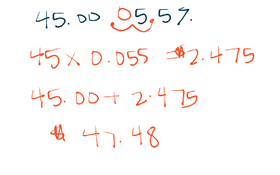 45.00 05.5%.
45 x 0.055 = $2.475
45.00 + 2.475
$ 47.48